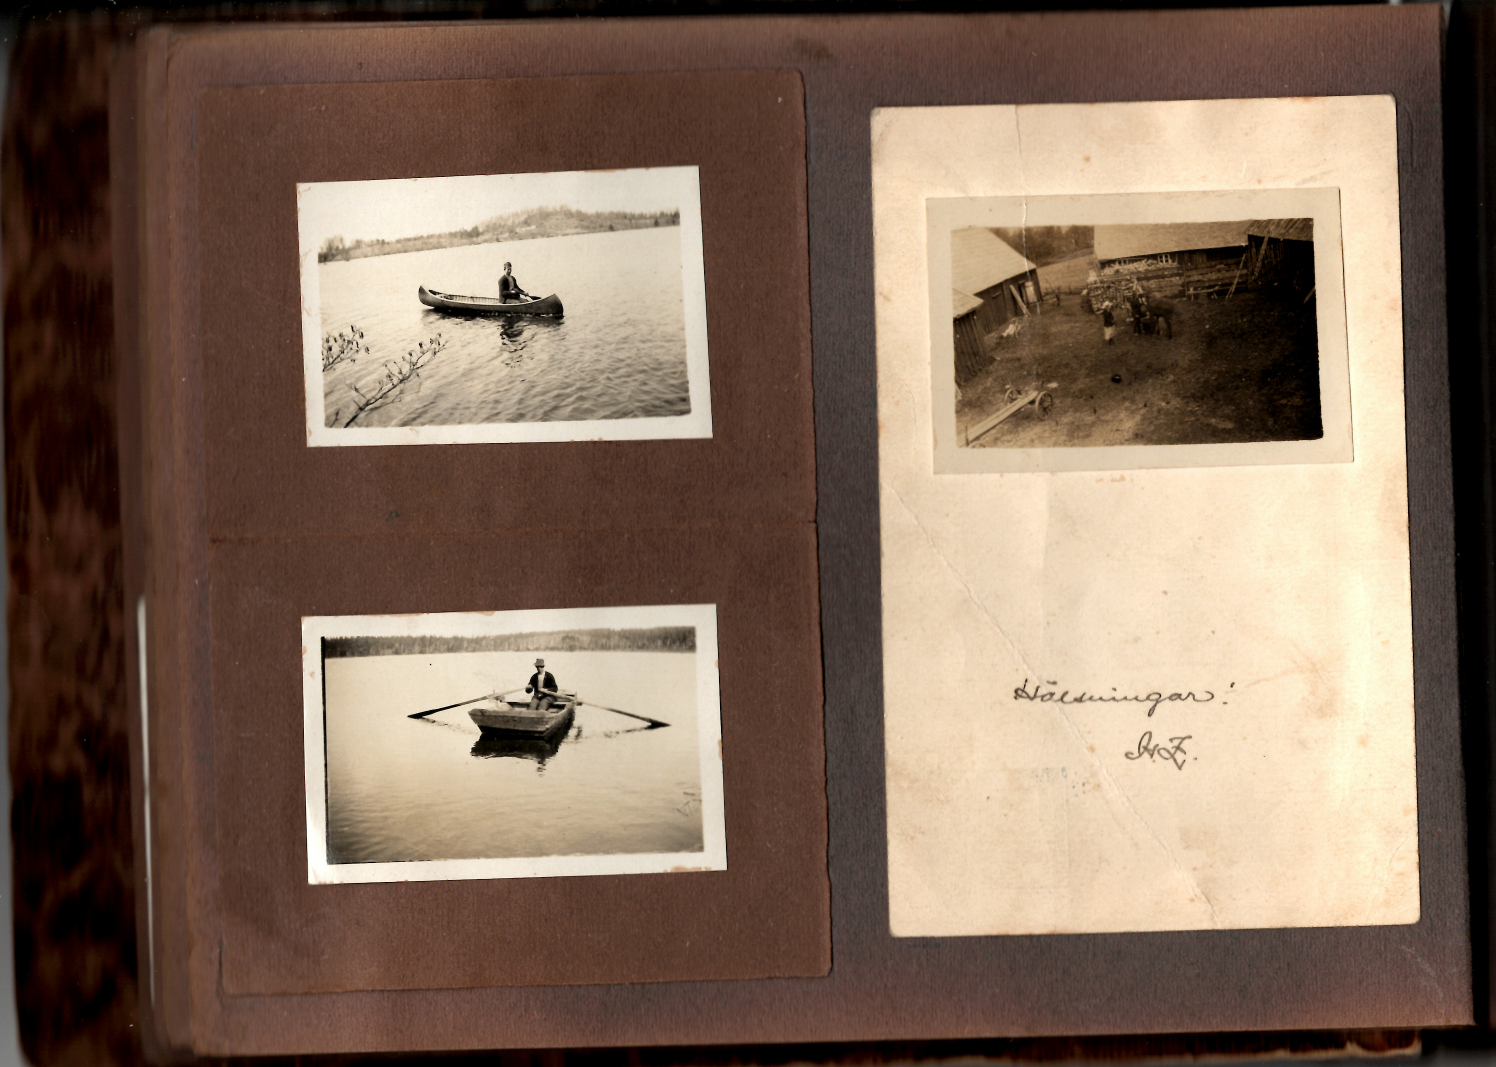 Hälsningar!
H.Z.